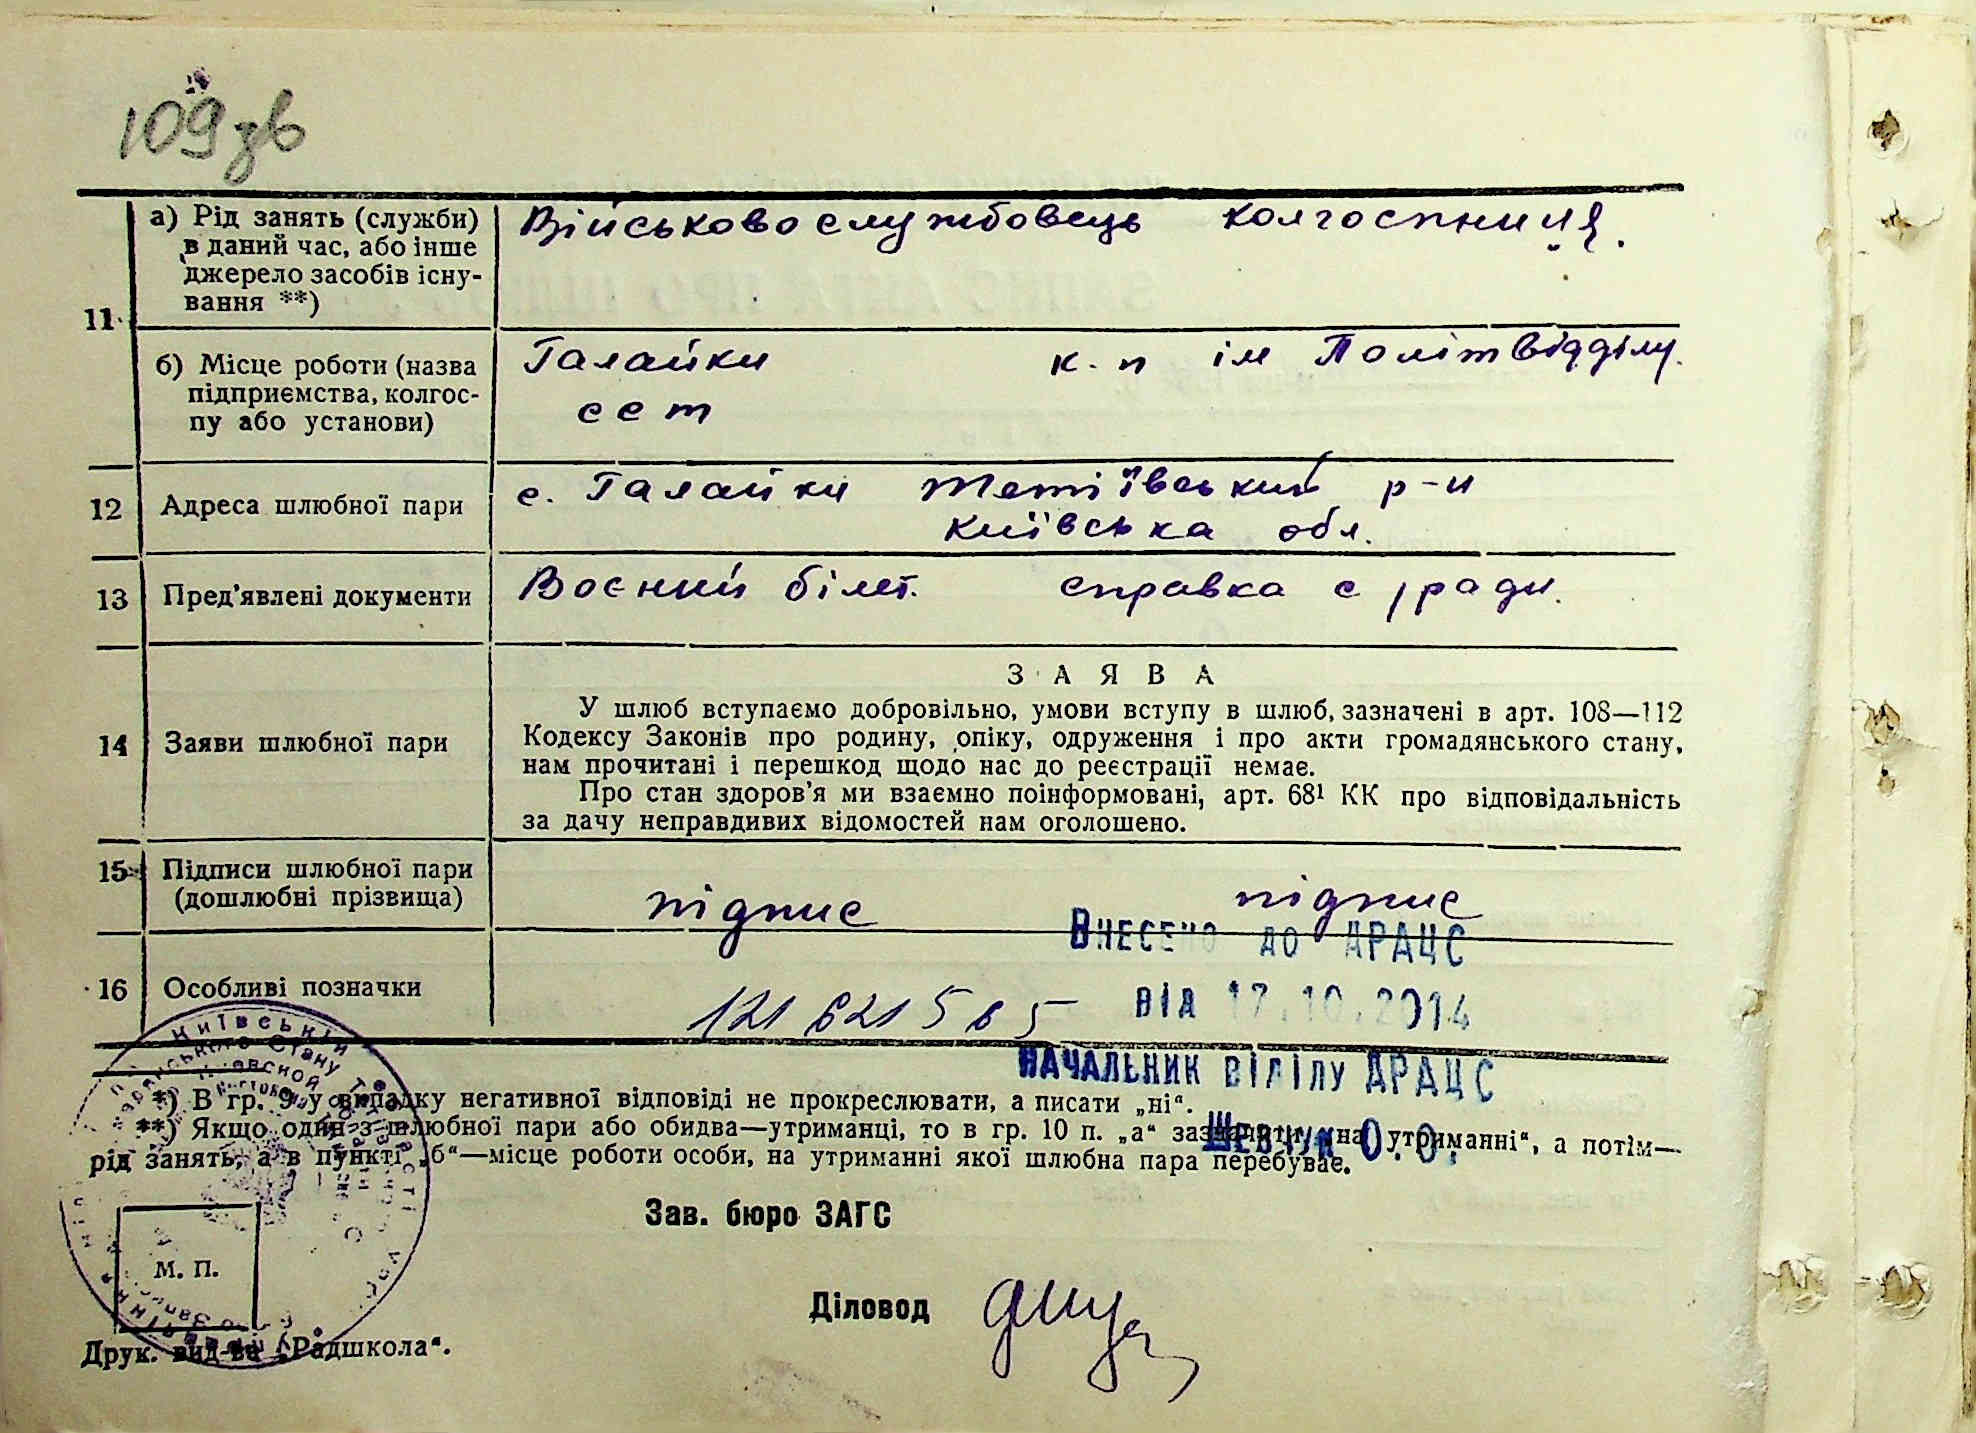 109 зв
а) Рід занять (служби) в даний час, або інше джерело засобів існування **)
Військовослужбовець колгоспниця.
11
б) Місце роботи (назва підприємства, колгоспу або установи)
Галайки к. п ім Політвідділу.
сст
12 Адреса шлюбної пари
с. Галайки Тетіївський р-н
Київська обл.
13 Пред'явлені документи
Воєний білет. справка с/ради.
14 Заяви шлюбної пари
ЗАЯВА
У шлюб вступаємо добровільно, умови вступу в шлюб, зазначені в арт. 108—112
Кодексу Законів про родину, опіку, одруження і про акти громадянського стану,
нам прочитані і перешкод щодо нас до реєстрації немає.
Про стан здоров'я ми взаємно поінформовані, арт. 68¹ КК про відповідальність
за дачу неправдивих відомостей нам оголошено.
15 Підписи шлюбної пари (дошлюбні прізвища)
підпис підпис
Внесено до ДРАЦС
16 Особливі позначки
121 621 565 від 17.10.2014
Начальник відділу ДРАЦС
*) В гр. 9 у випадку негативної відповіді не прокреслювати, а писати „ні“.
**) Якщо один з шлюбної пари або обидва—утриманці, то в гр. 10 п. „а“ зазначити „на утриманні“, а потім—
Шевчук О.О.
рід занять, а в пункті „б“—місце роботи особи, на утриманні якої шлюбна пара перебуває.
Зав. бюро ЗАГС
М. П.
Діловод
Друк. вид-ва „Радшкола“.